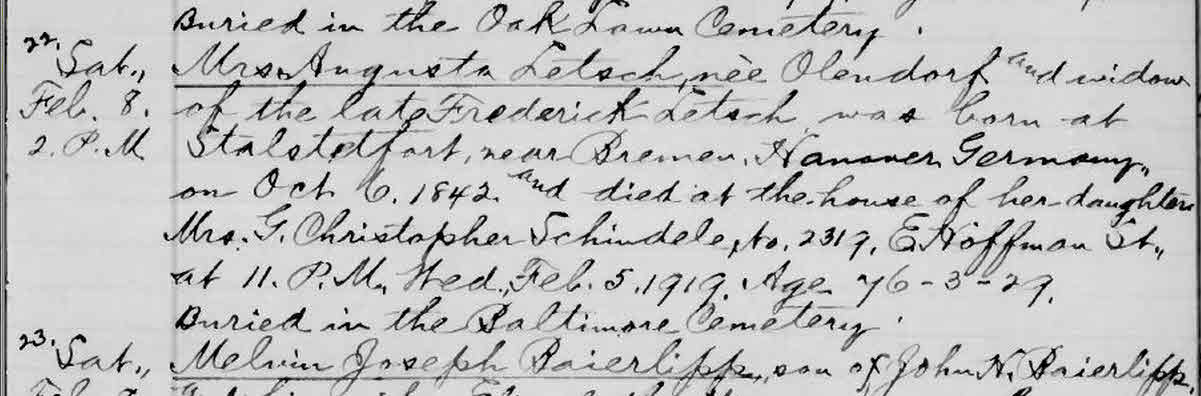 Buried in the Oak Lawn Cemetery.
22. Sat., Mrs. Augusta Letsch, née Olendorf and widow
Feb. 8. of the late Frederick Letsch was born at
2. P.M. Stalstedfort, near Bremen, Hanover Germany,
on Oct 6. 1842. and died at the house of her daughter
Mrs. G. Christopher Schindele, No. 2319, E. Hoffman St.,
at 11. P.M., Wed., Feb. 5. 1919. Age 76-3-29.
Buried in the Baltimore Cemetery.
23. Sat., Melvin Joseph Baierlipp, son of John N. Baierlipp,